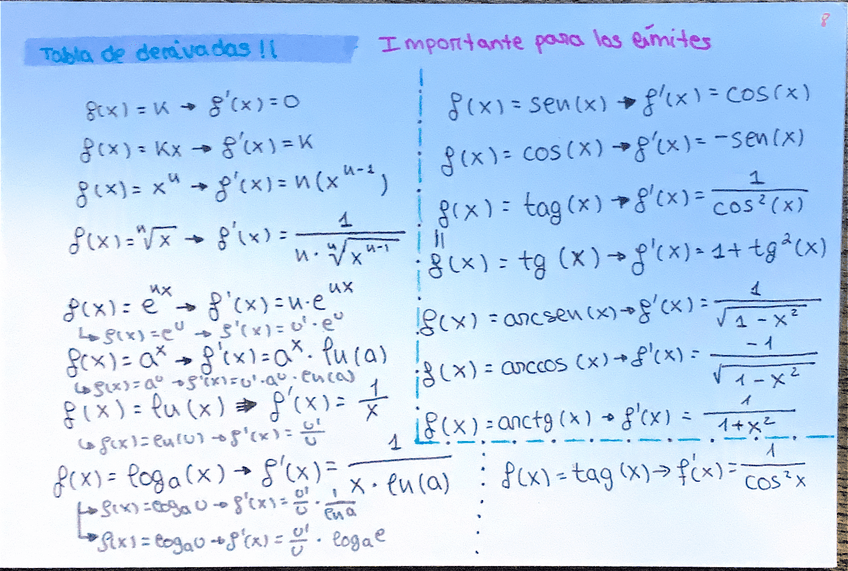 8
Tabla de derivadas!!
Importante para los límites
f(x) = K → f'(x) = 0
f(x) = Kx → f'(x) = K
f(x) = xⁿ → f'(x) = n(xⁿ⁻¹)
f(x) = ⁿ√x → f'(x) = 1 / (n · ⁿ√(xⁿ⁻¹))
f(x) = e^(nx) → f'(x) = n · e^(nx)
↳ f(x) = e^u → f'(x) = u' · e^u
f(x) = a^x → f'(x) = a^x · ln(a)
↳ f(x) = a^u → f'(x) = u' · a^u · ln(a)
f(x) = ln(x) → f'(x) = 1/x
↳ f(x) = ln(u) → f'(x) = u'/u
f(x) = logₐ(x) → f'(x) = 1 / (x · ln(a))
↳ f(x) = logₐu → f'(x) = u'/u · 1/ln a
↳ f(x) = logₐu → f'(x) = u'/u · logₐe
f(x) = sen(x) → f'(x) = cos(x)
f(x) = cos(x) → f'(x) = -sen(x)
f(x) = tag(x) → f'(x) = 1 / cos²(x)
=
f(x) = tg(x) → f'(x) = 1 + tg²(x)
f(x) = arcsen(x) → f'(x) = 1 / √(1 - x²)
f(x) = arccos(x) → f'(x) = -1 / √(1 - x²)
f(x) = arctg(x) → f'(x) = 1 / (1 + x²)
f(x) = tag(x) → f'(x) = 1 / cos²x